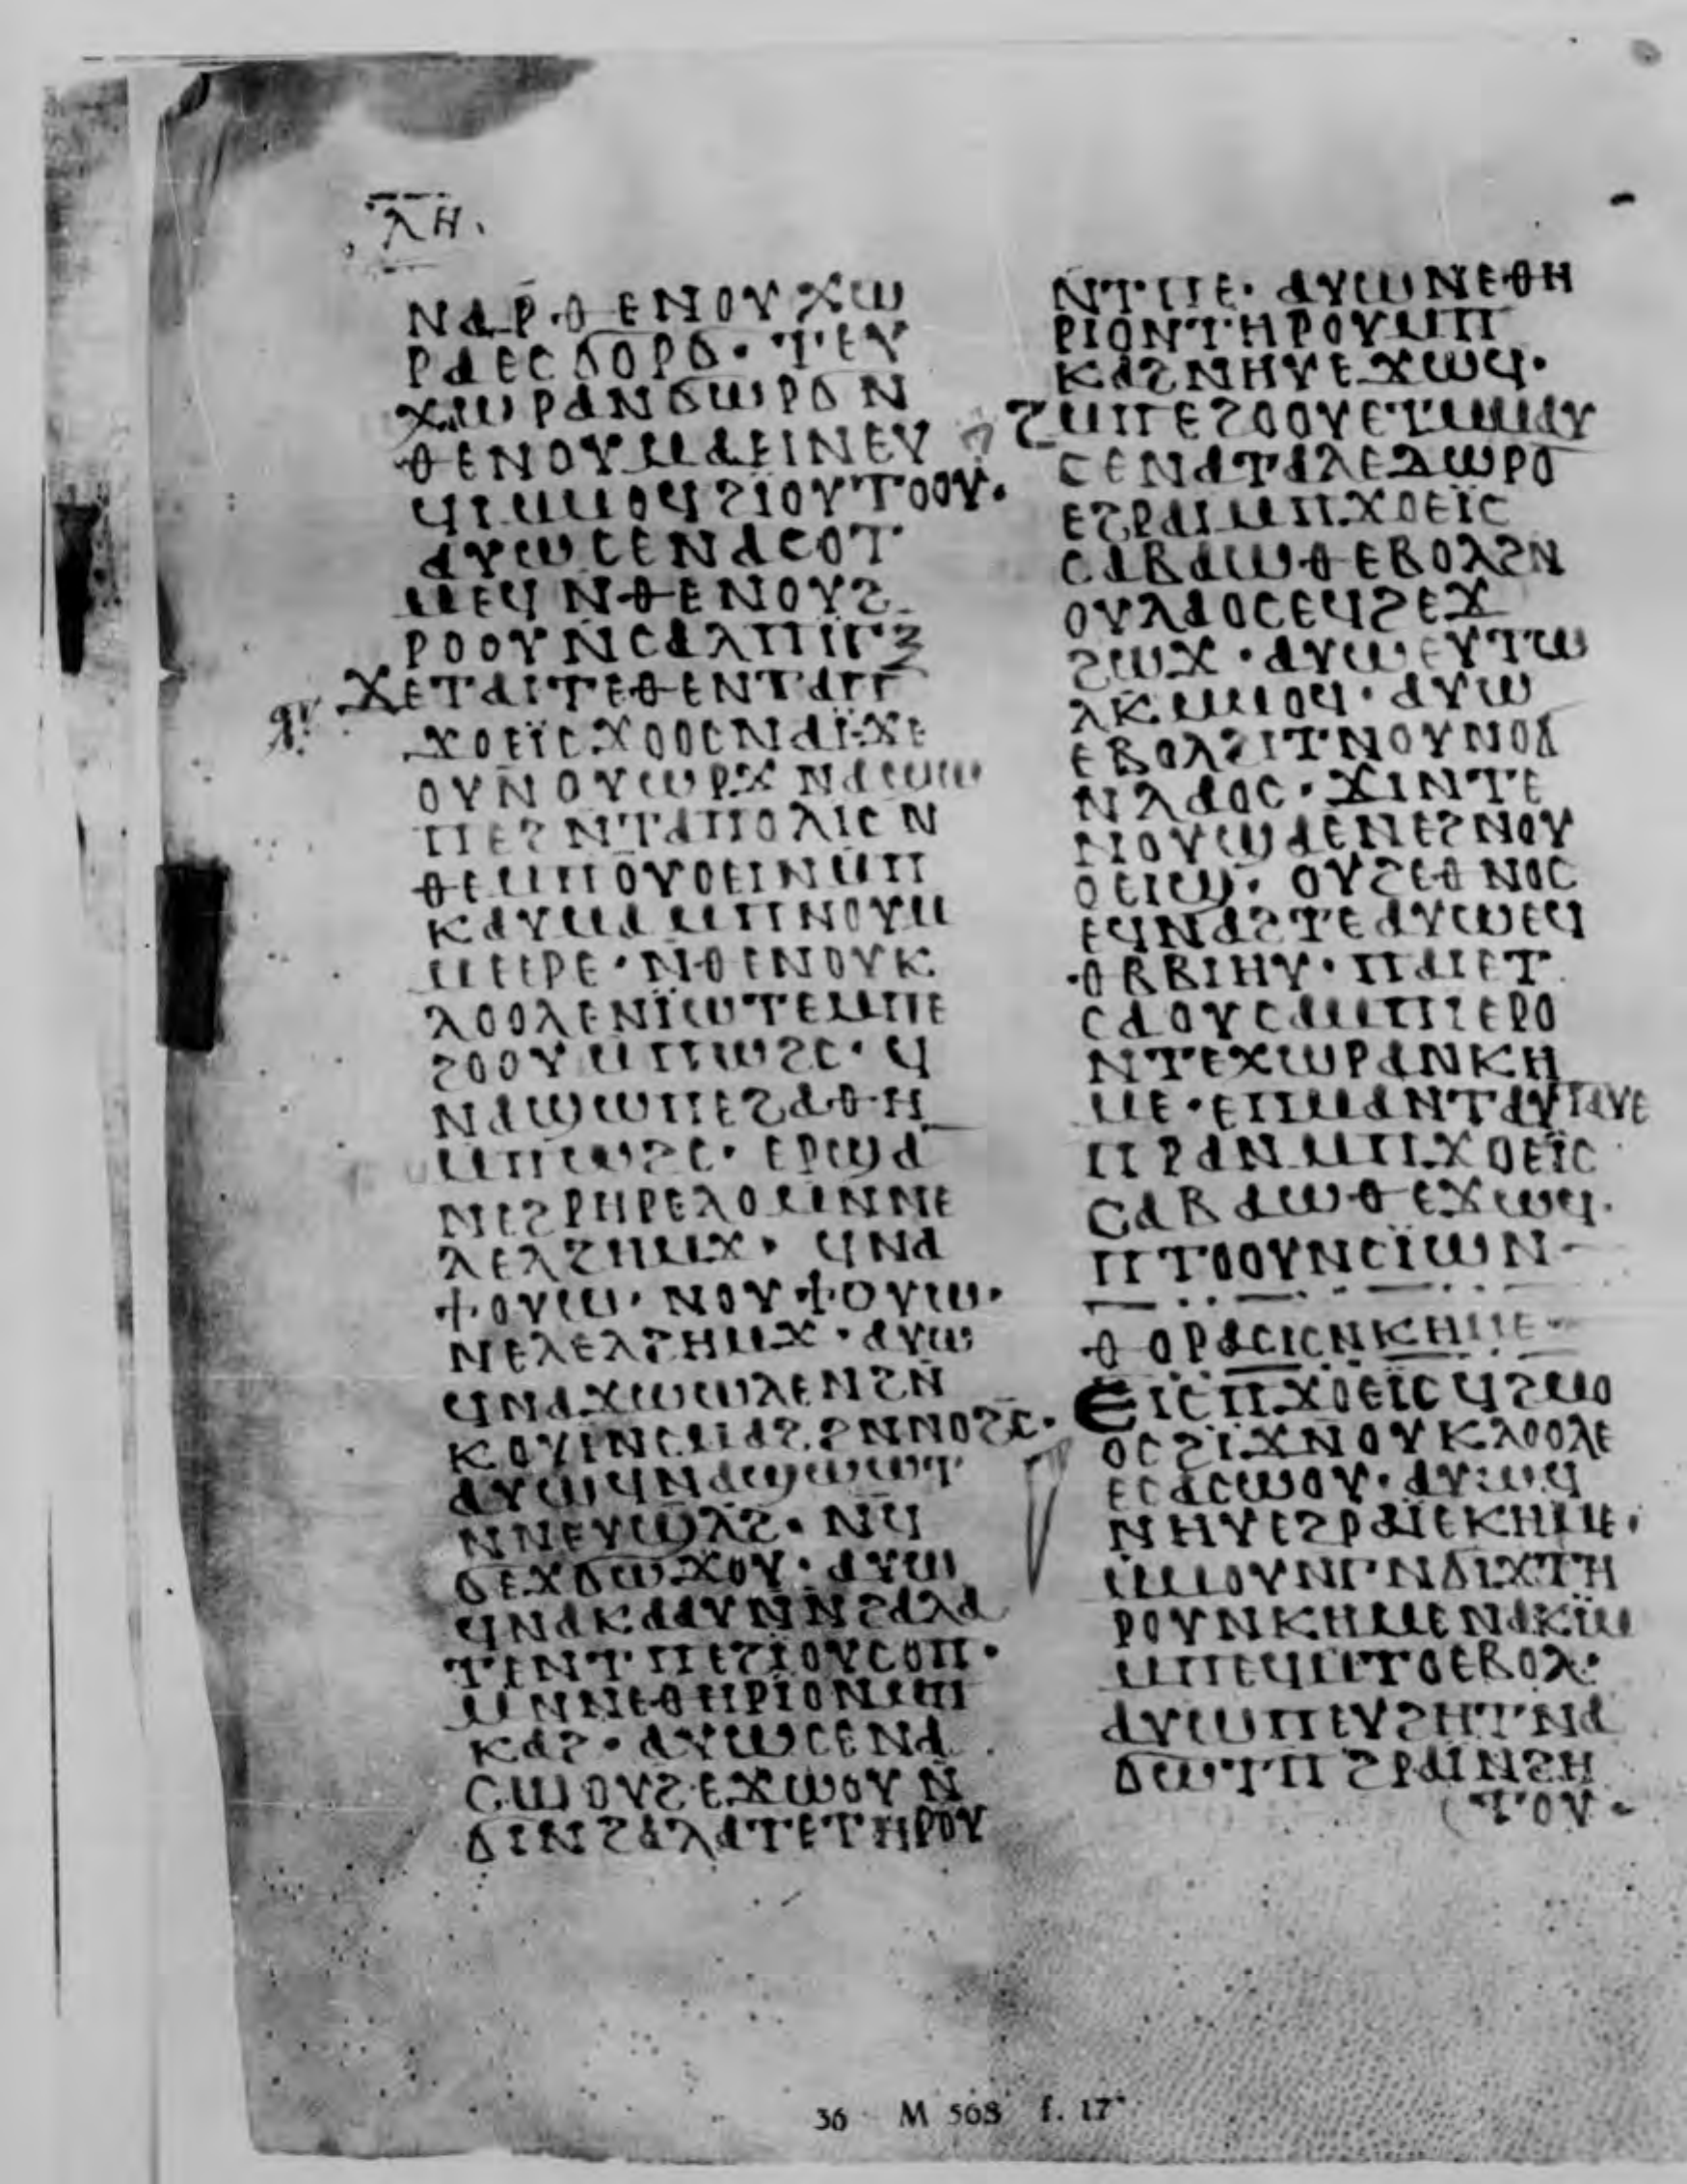 ⲗⲏ
ⲛⲁⲣ·ⲑⲉⲛⲟⲩⲭⲱ
ⲣⲁⲉⲥϭⲟⲣϭ· ⲧⲉⲩ
ⲭⲱⲣⲁⲛϭⲱⲣϭ ⲛ
ⲑⲉⲛⲟⲩⲙⲁⲉⲓⲛⲉⲩ
ϥⲓⲙⲙⲟϥϩⲓⲟⲩⲧⲟⲟⲩ·
ⲁⲩⲱⲥⲉⲛⲁⲥⲟⲧ
ⲙⲉϥ ⲛⲑⲉⲛⲟⲩϩ
ⲣⲟⲟⲩⲛⲥⲁⲗⲡⲓⲅⲝ
ϫⲉⲧⲁⲓⲧⲉⲑⲉⲛⲧⲁⲡ
ϫⲟⲉⲓⲥϫⲟⲟⲥⲛⲁⲓ·ϫⲉ
ⲟⲩⲛⲟⲩⲱⲣϫ ⲛⲁϣⲱ
ⲡⲉϩⲛⲧⲁⲡⲟⲗⲓⲥ ⲛ
ⲑⲉⲙⲡⲟⲩⲟⲉⲓⲛⲙⲡ
ⲕⲁⲩⲙⲁ ⲙⲡⲛⲟⲩⲙ
ⲙⲉⲉⲣⲉ·ⲛⲑⲉⲛⲟⲩⲕ
ⲗⲟⲟⲗⲉⲛⲓⲱⲧⲉⲙⲡⲉ
ϩⲟⲟⲩ ⲙⲡⲱϩⲥ· ϥ
ⲛⲁϣⲱⲡⲉϩⲁⲑⲏ
ⲙⲡⲱϩⲥ· ⲉⲣϣⲁ
ⲡⲉϩⲣⲏⲣⲉⲗⲟ ⲉⲛⲛⲉ
ⲗⲉⲗϩⲙϫ· ϥⲛⲁ
ϯⲟⲩⲱ· ⲛⲟⲩϯⲟⲩⲱ·
ⲛⲉⲗⲉⲗϩⲏⲙϫ·ⲁⲩⲱ
ϥⲛⲁϫⲱⲱⲗⲉⲛϩⲛ
ⲕⲟⲩⲓⲛⲥⲙⲁϩ ϩⲛⲛⲟϩⲥ·
ⲁⲩⲱϥⲛⲁϣⲱⲱⲧ
ⲛⲛⲉⲩϣⲗϩ· ⲛϥ
ϭⲉϫϭⲱϫⲟⲩ· ⲁⲩⲱ
ϥⲛⲁⲕⲁⲁⲩⲛⲛϩⲁⲗⲁ
ⲧⲉⲛⲧⲡⲉϩⲓⲟⲩⲥⲟⲡ·
ⲙⲛⲛⲉⲑⲏⲣⲓⲟⲛⲙⲡ
ⲕⲁϩ· ⲁⲩⲱⲥⲉⲛⲁ
ⲥⲱⲟⲩϩⲉϫⲱⲟⲩ ⲛ
ϭⲓⲛϩⲁⲗⲁⲧⲉⲧⲏⲣⲟⲩ
ⲛⲧⲡⲉ· ⲁⲩⲱⲛⲉⲑⲏ
ⲣⲓⲟⲛⲧⲏⲣⲟⲩⲙⲡ
ⲕⲁϩⲛⲏⲩⲉϫⲱϥ·
ϩⲙⲡⲉϩⲟⲟⲩⲉⲧⲙⲙⲁⲩ
ⲥⲉⲛⲁⲧⲁⲗⲉⲇⲱⲣⲟ
ⲉϩⲣⲁⲓⲙⲡϫⲟⲉⲓⲥ
ⲥⲁⲃⲁⲱⲑⲉⲃⲟⲗϩⲛ
ⲟⲩⲗⲁⲟⲥⲉϥϩⲉϫ
ϩⲱϫ·ⲁⲩⲱⲉⲩⲧⲱ
ⲗⲕⲙⲙⲟϥ· ⲁⲩⲱ
ⲉⲃⲟⲗϩⲓⲧⲛⲟⲩⲛⲟϭ
ⲛⲗⲁⲟⲥ·ϫⲓⲛⲧⲉ
ⲛⲟⲩϣⲁⲉⲛⲉϩⲛⲟⲩ
ⲟⲉⲓϣ· ⲟⲩϩⲉⲑⲛⲟⲥ
ⲉϥⲛⲁϩⲧⲉⲁⲩⲱⲉϥ
ⲑⲃⲃⲓⲏⲩ· ⲡⲁⲓⲉⲧ
ⲥⲁⲟⲩⲥⲁⲙⲡⲓⲉⲣⲟ
ⲛⲧⲉⲭⲱⲣⲁⲛⲕⲏ
ⲙⲉ·ⲉⲡⲙⲁⲛⲧⲁⲩⲧⲁⲩⲉ
ⲡⲣⲁⲛ ⲙⲡϫⲟⲉⲓⲥ
ⲥⲁⲃⲁⲱⲑⲉϫⲱϥ·
ⲡⲧⲟⲟⲩⲛⲥⲓⲱⲛ
ⲑⲟⲣⲁⲥⲓⲥⲛⲕⲏⲙⲉ
ⲉⲓⲥⲡϫⲟⲉⲓⲥϥϩⲙⲟ
ⲟⲥϩⲓϫⲛⲟⲩⲕⲗⲟⲟⲗⲉ
ⲉⲥⲁⲥⲱⲟⲩ·ⲁⲩⲱϥ
ⲛⲏⲩⲉϩⲣⲁⲓⲉⲕⲏⲙⲉ·
ⲙⲙⲟⲩⲛⲅⲛϭⲓϫⲧⲏ
ⲣⲟⲩⲛⲕⲏⲙⲉⲛⲁⲕⲓⲙ
ⲙⲡⲉϥⲙⲧⲟⲉⲃⲟⲗ·
ⲁⲩⲱⲡⲉⲩϩⲏⲧⲛⲁ
ϭⲱⲧⲡ ϩⲣⲁⲓⲛϩⲏ
ⲧⲟⲩ·
36 M 568 f. 17ᵛ